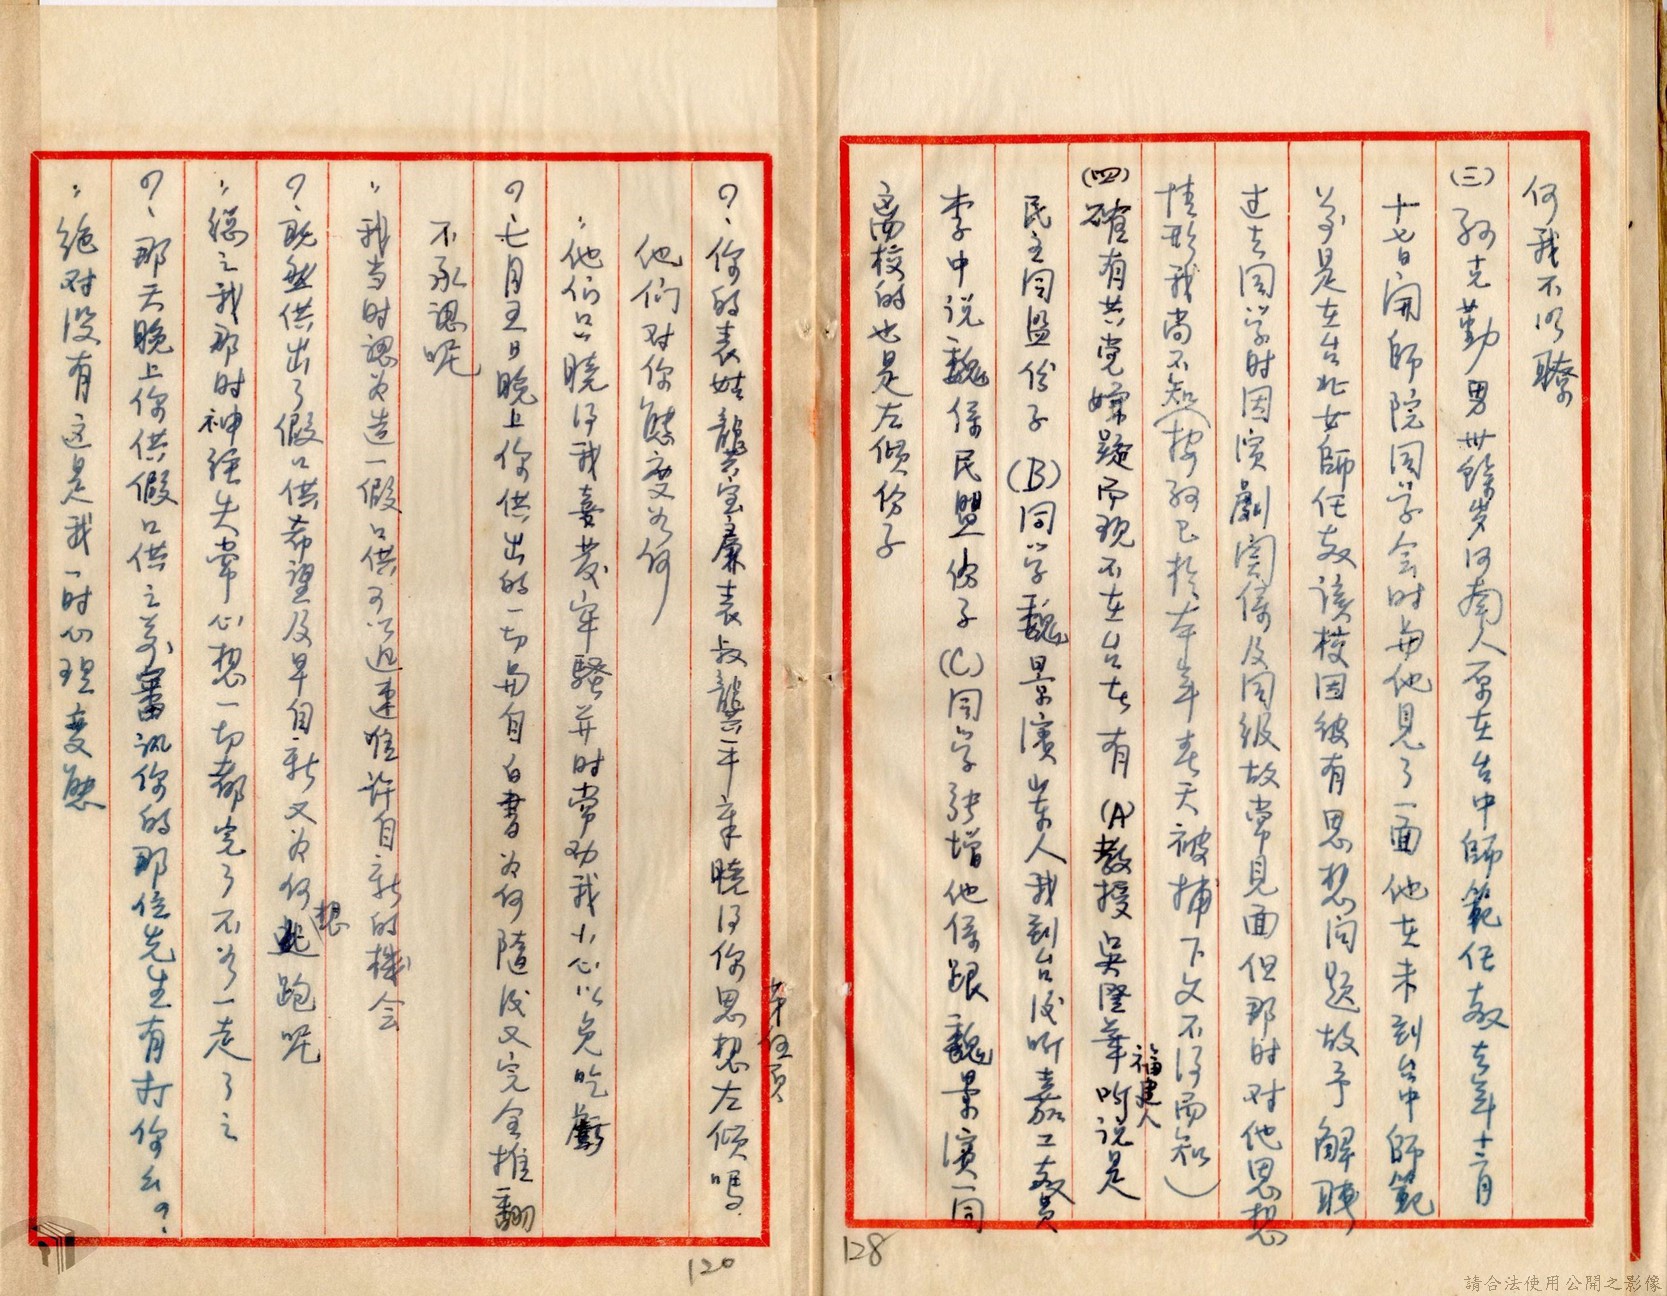 何我不明瞭
(三)孫克勤男卅餘岁河南人原在台中師範任教去年十二月
十七日開師院同学会时与他見了一面他在未到台中師範
前是在台北女師任教該校因彼有思想问题故予解聘
过去同学时因演劇関係及同级故常見面但那时对他思想
情形我尚不知(按孫已於本年春天被捕下文不得而知)
(四)確有共党嫌疑而现不在台者有(A)教授吳曌華听说是
福建人
民主同盟份子(B)同学魏景濱山東人我到台後听嘉工教員
李中说魏係民盟份子(C)同学張增他係跟魏景濱一同
离校的也是左傾份子
第伍页
?、你的表姑龔宝廉表叔龔平章曉得你思想左傾嗎
他们对你態度为何
〃他们只曉得我喜发牢騷并时常劝我小心以免吃虧
?七月五日晚上你供出的一切与自白書为何隨後又完全推翻
不承認呢
〃我当时認为造一假口供可以迅速准许自新的機会
?、既然供出了假口供希望及早自新又为何想逃跑呢
〃總之我那时神經失常心想一切都完了不如一走了之
?、那天晚上你供假口供之前審讯你的那位先生有打你么?
〃絕对没有这是我一时心理变態
120
128
請合法使用公開之影像